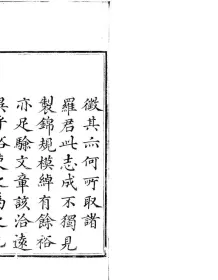 徵其亦何所取諸
羅君此志成不獨見
製錦規模綽有餘裕
亦足驗文章該洽遠